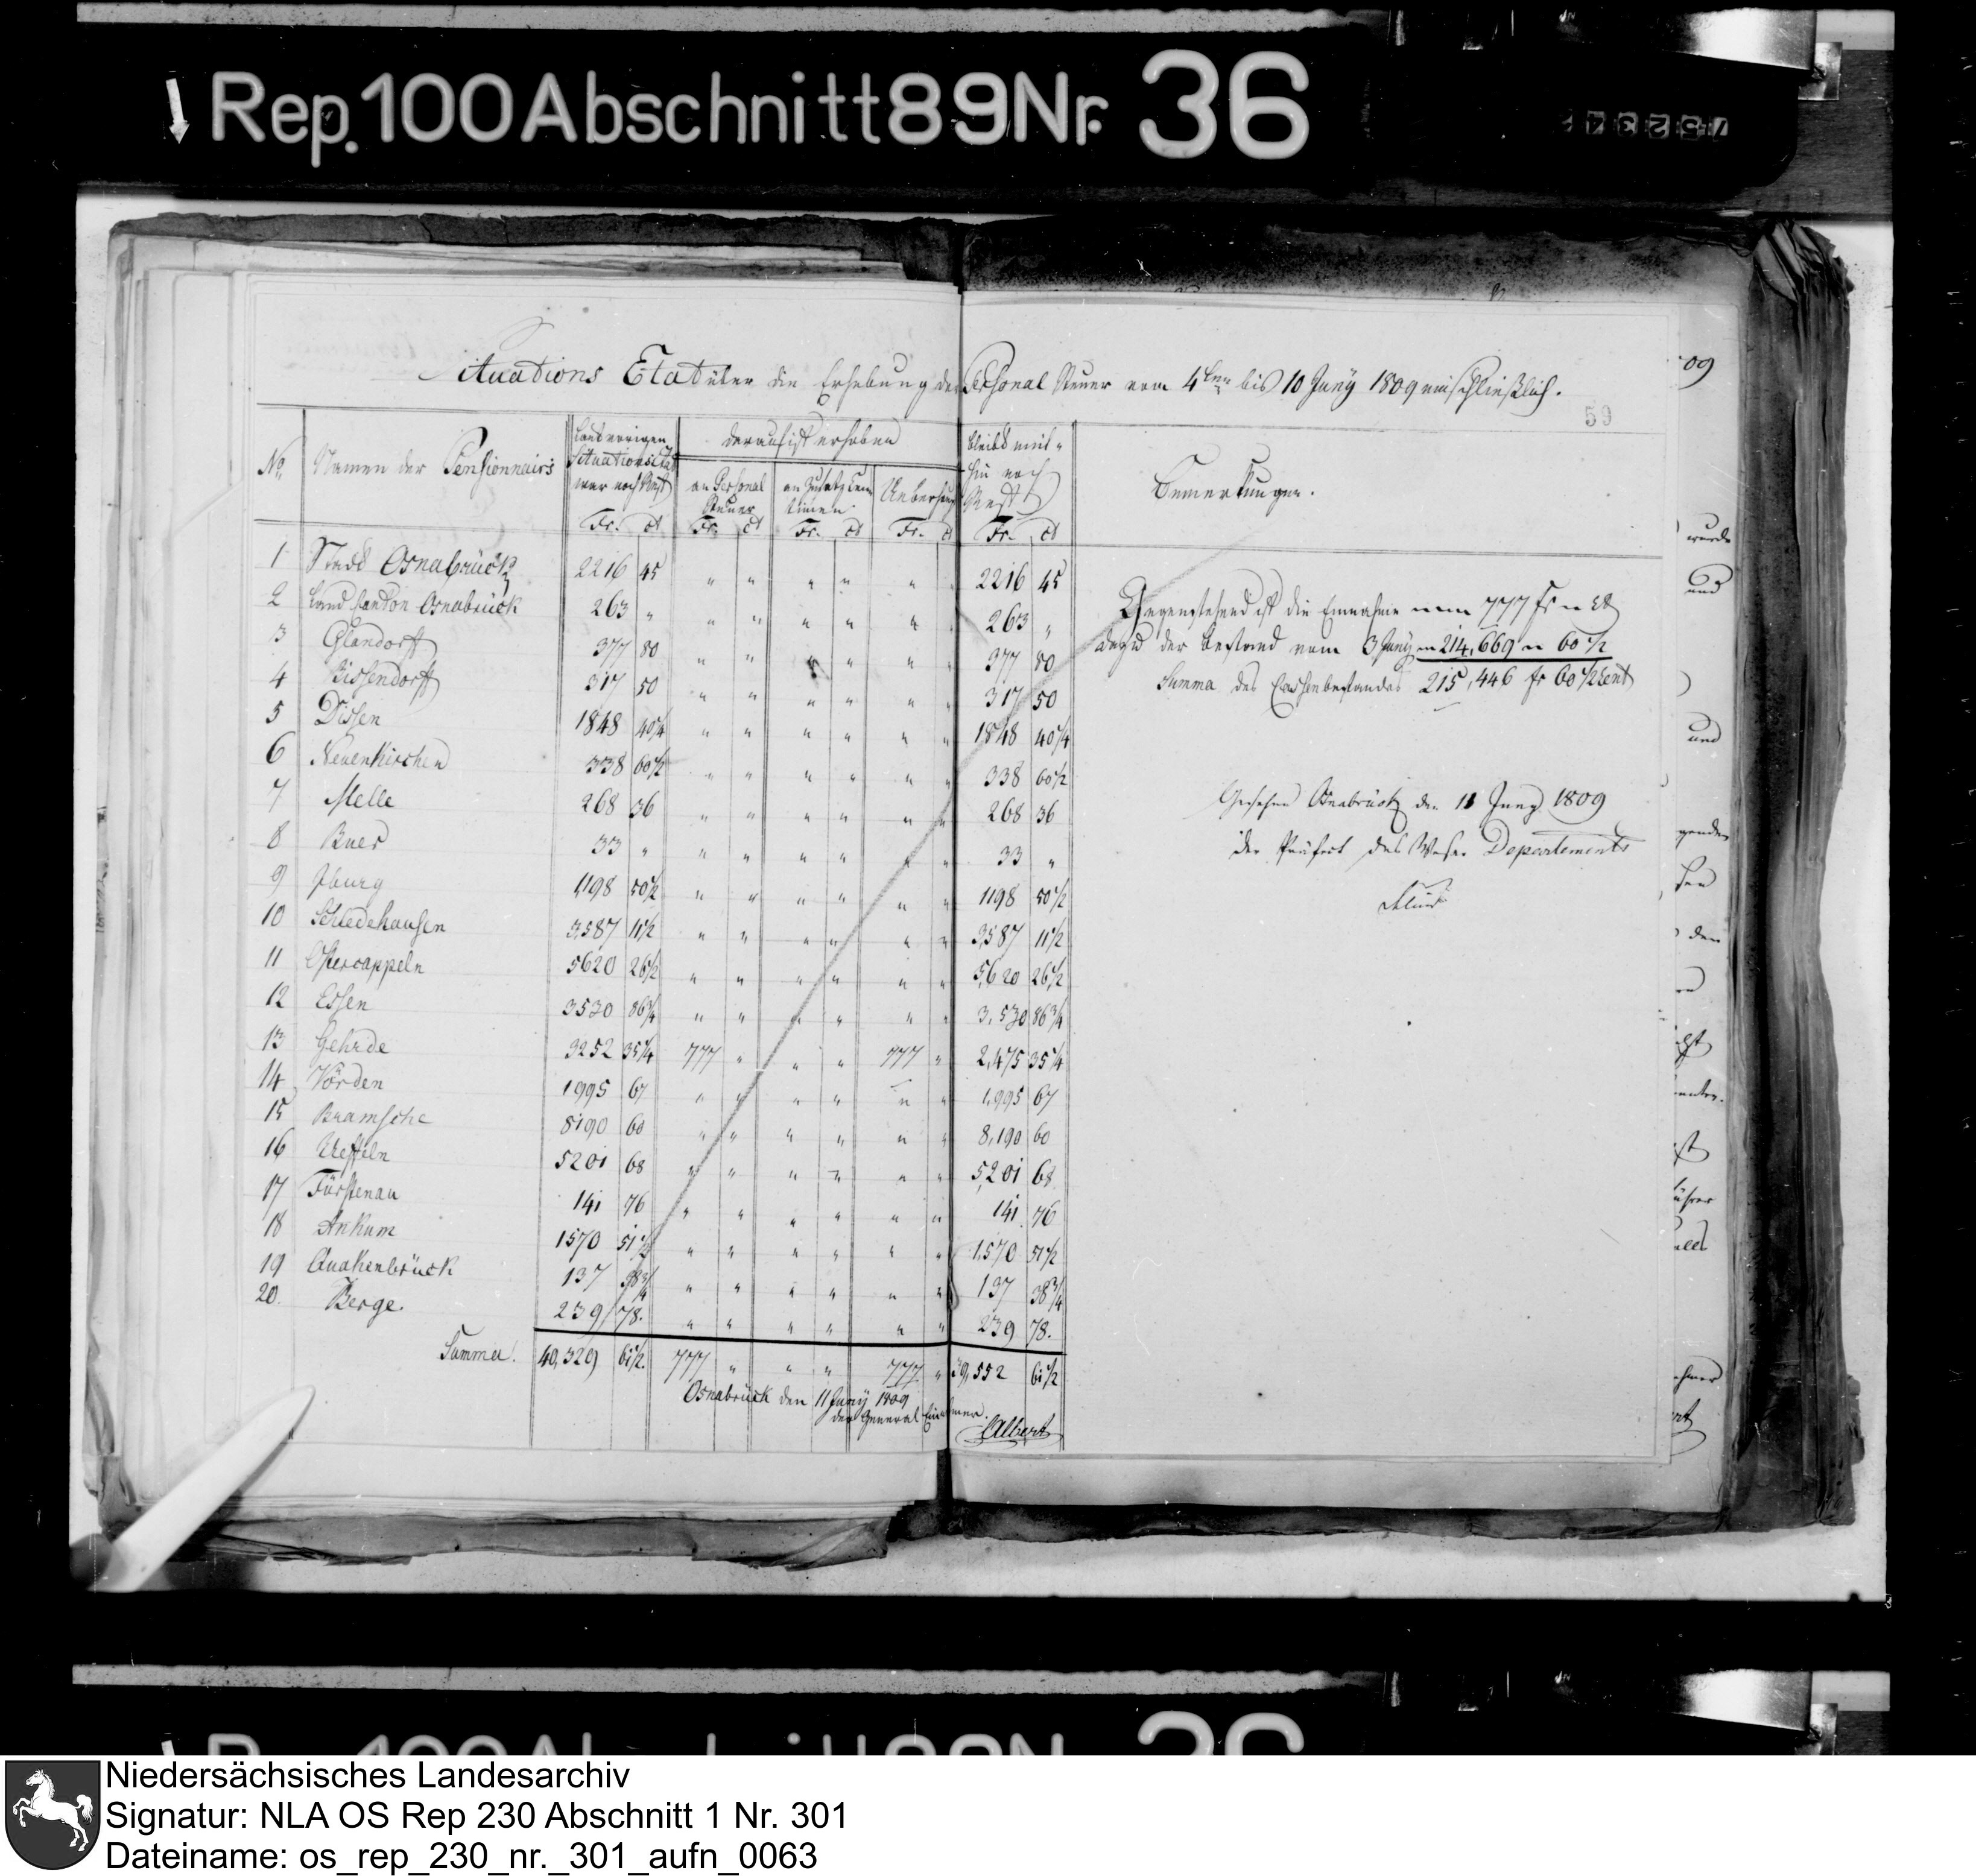 Rep. 100 Abschnitt 89 Nr. 36
Situations Etat über die Erhebung der Personal Steuer vom 4ten bis 10 Juny 1809 einschließlich.
09
59
No. Namen der Pensionnairs
Laut vorigen Situations Etat war noch Rest
darauf ist erhoben
an Personal Steuer
an Zusatz Centimen
Ueberhaupt
bleibt mithin noch Rest
Bemerkungen.
Fr. ct Fr. ct Fr. ct Fr. ct Fr. ct
1 Stadt Osnabrück 2216 45 " " " " " 2216 45
2 Land Canton Osnabrück 263 " " " " " " 263 "
3 Glandorff 377 80 " " " " " 377 80
4 Bissendorff 317 50 " " " " " " 317 50
5 Dissen 1848 40 1/4 " " " " " " 1848 40 1/4
6 Neuenkirchen 338 60 1/2 " " " " " " 338 60 1/2
7 Melle 268 36 " " " " " " 268 36
8 Buer 33 " " " " " " " 33 "
9 Iburg 1198 50 1/2 " " " " " " 1198 50 1/2
10 Schledehausen 3587 11 1/2 " " " " " " 3587 11 1/2
11 Ostercappeln 5620 26 1/2 " " " " " " 5,620 26 1/2
12 Essen 3530 86 3/4 " " " " " " 3,530 86 3/4
13 Gehrde 3252 35 1/4 777 " " " 777 " 2,475 35 1/4
14 Vörden 1995 67 " " " " " " 1,995 67
15 Bramsche 8190 60 " " " " " " 8,190 60
16 Ueffeln 5201 68 " " " " " " 5,201 68
17 Fürstenau 141 76 " " " " " " 141 76
18 Ankum 1570 51 1/2 " " " " " " 1,570 51 1/2
19 Quakenbrück 137 38 3/4 " " " " " " 137 38 3/4
20. Berge. 239 78. " " " " " " 239 78.
Summa. 40,329 61 1/2 777 " " " 777 " 39,552 61 1/2
Osnabrück den 11 Juny 1809
der General Einnehmer.
Albert
Gegenstehend ist die Einnahme 777 fr " ct
dazu der Bestand vom 3 Juny 214,669 " 60 1/2
Summa des Cassenbestandes 215,446 fr 60 1/2 Cent
Gesehen Osnabrück den 11 Juny 1809
der Präfect des Weser Departements
wurde
und
und
den
Niedersächsisches Landesarchiv
Signatur: NLA OS Rep 230 Abschnitt 1 Nr. 301
Dateiname: os_rep_230_nr._301_aufn_0063